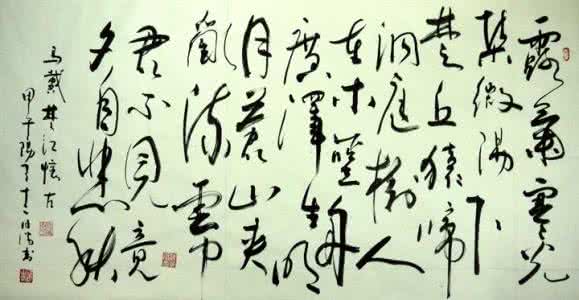 露氣寒光
集微陽下
楚丘猿啼
洞庭樹人
在木蘭舟
廣澤生明
月蒼山夾
亂流雲中
君不見竟
夕自悲秋
馬戴 楚江懷古
甲午